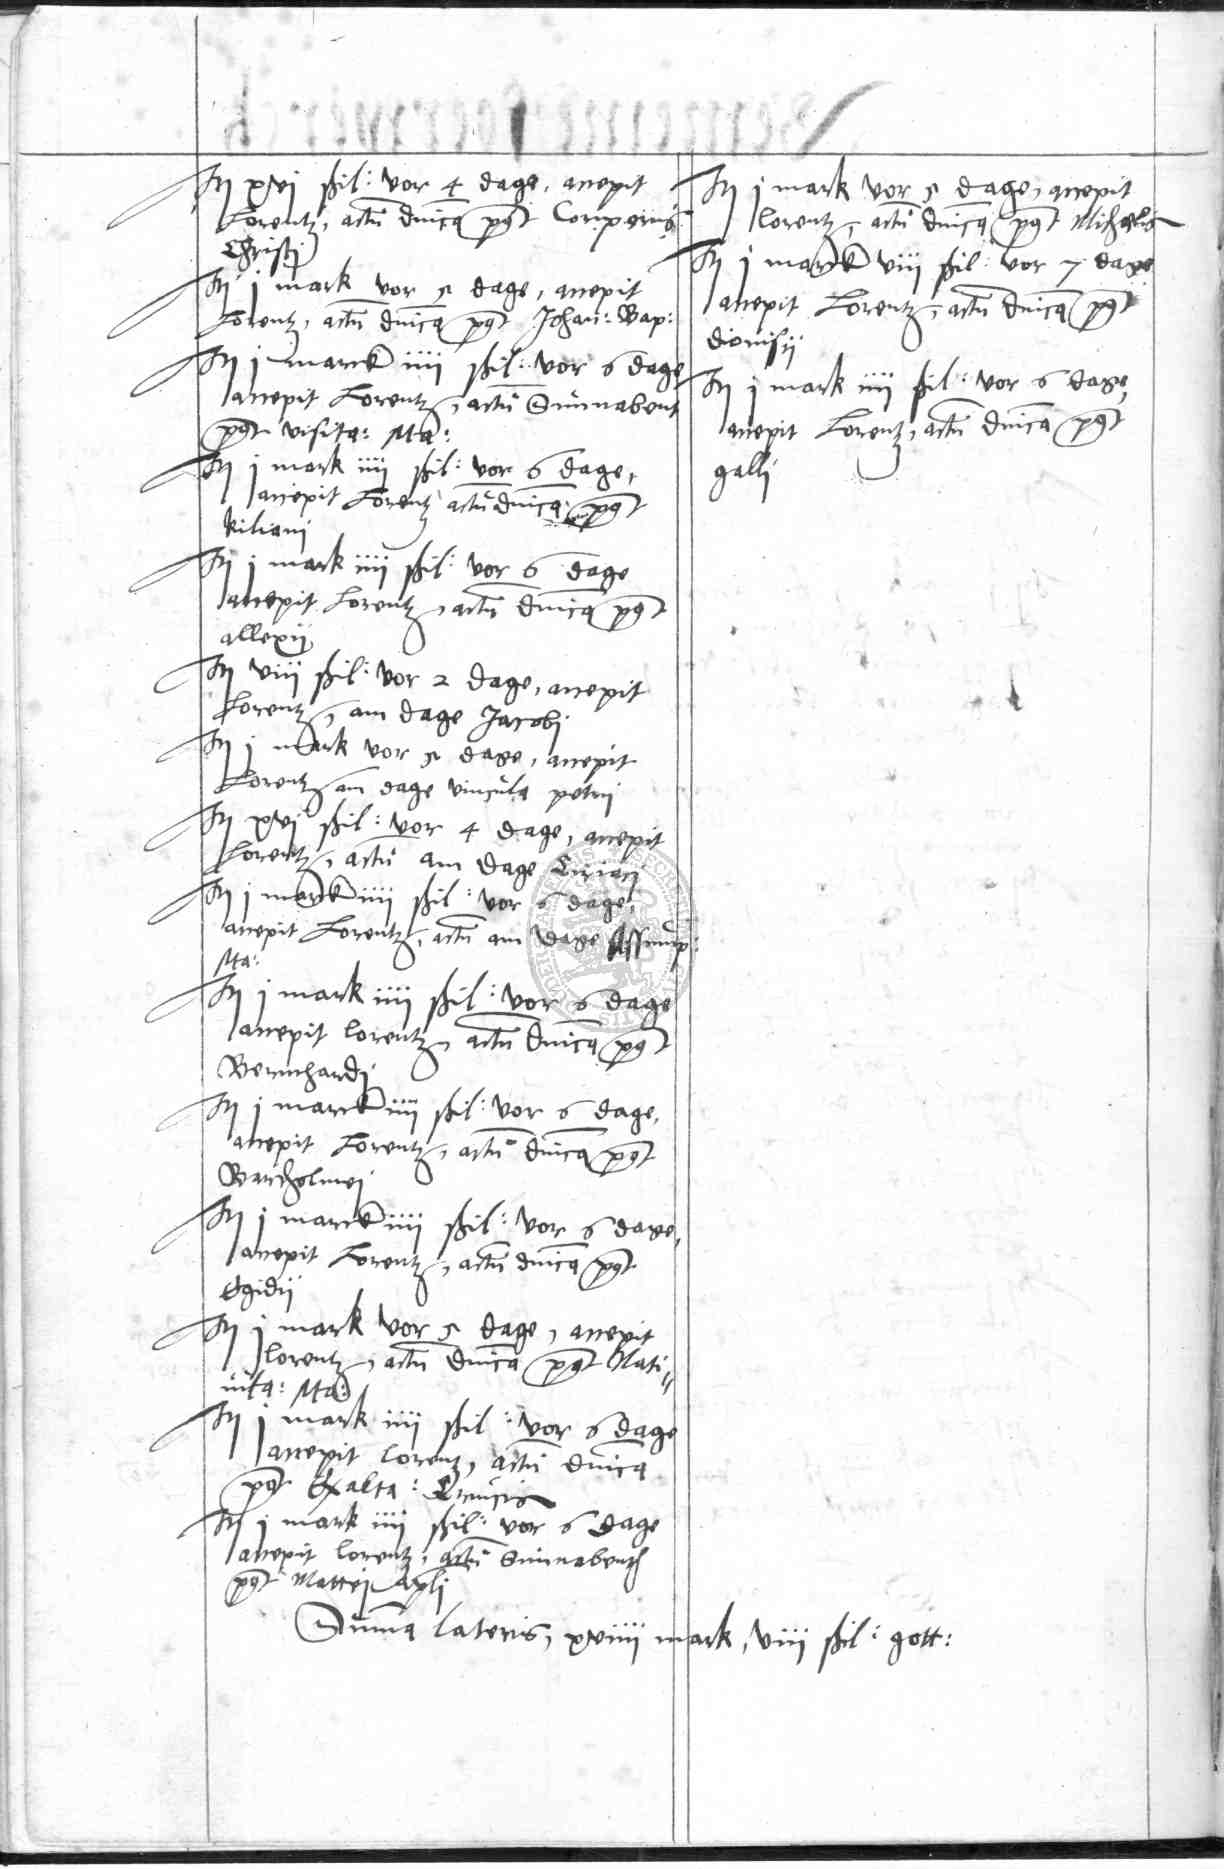 It xvj ßil: vor 4 dage, accepit
Lorentz, actu dnica pst Corperis
Christj
It j mark vor 5 dage, accepit
Lorentz, actu dnica pst Johan: Bap:
It j marck iiij ßil: vor 6 dage
accepit Lorentz, actu Sunnabent
pst visita: Ma:
It j mark iiij ßil: vor 6 dage,
accepit Lorentz actu dnica pst
kiliani
It j mark iiij ßil: vor 6 dage
accepit Lorentz, actu dnica pst
allexij
It viij ßil: vor 2 dage, accepit
Lorentz, am dage Jacobj
It j mark vor 5 dage, accepit
Lorentz am dage vincula petri
It xvj ßil: vor 4 dage, accepit
Lorentz, actu am dage Ciriacj
It j marck iiij ßil: vor 6 dage,
accepit Lorentz, actu am dage Assump:
Ma:
It j mark iiij ßil: vor 6 dage
accepit lorentz, actu dnica pst
Bernhardj
It j marck iiij ßil: vor 6 dage,
accepit Lorentz, actu dnica pst
Bartholmej
It j marck iiij ßil: vor 6 dage,
accepit Lorentz, actu dnica pst
Egidij
It j mark vor 5 dage, accepit
lorentz, actu dnica pst Nati=
uita: Ma:
It j mark iiij ßil: vor 6 dage
accepit lorentz, actu dnica
pst Exalta: Crucis
It j mark iiij ßil: vor 6 dage
accepit lorentz, actu Sunnabenth
pst Mattej Apli
It j mark vor 5 dage, accepit
lorentz, actu dnica pst Michaelis
It j marck viij ßil: vor 7 dage
accepit Lorentz, actu dnica pst
dionisij
It j mark iiij ßil: vor 6 dage,
accepit Lorentz, actu dnica pst
gallj
Summa lateris, xviiij mark, viij ßil: gott: